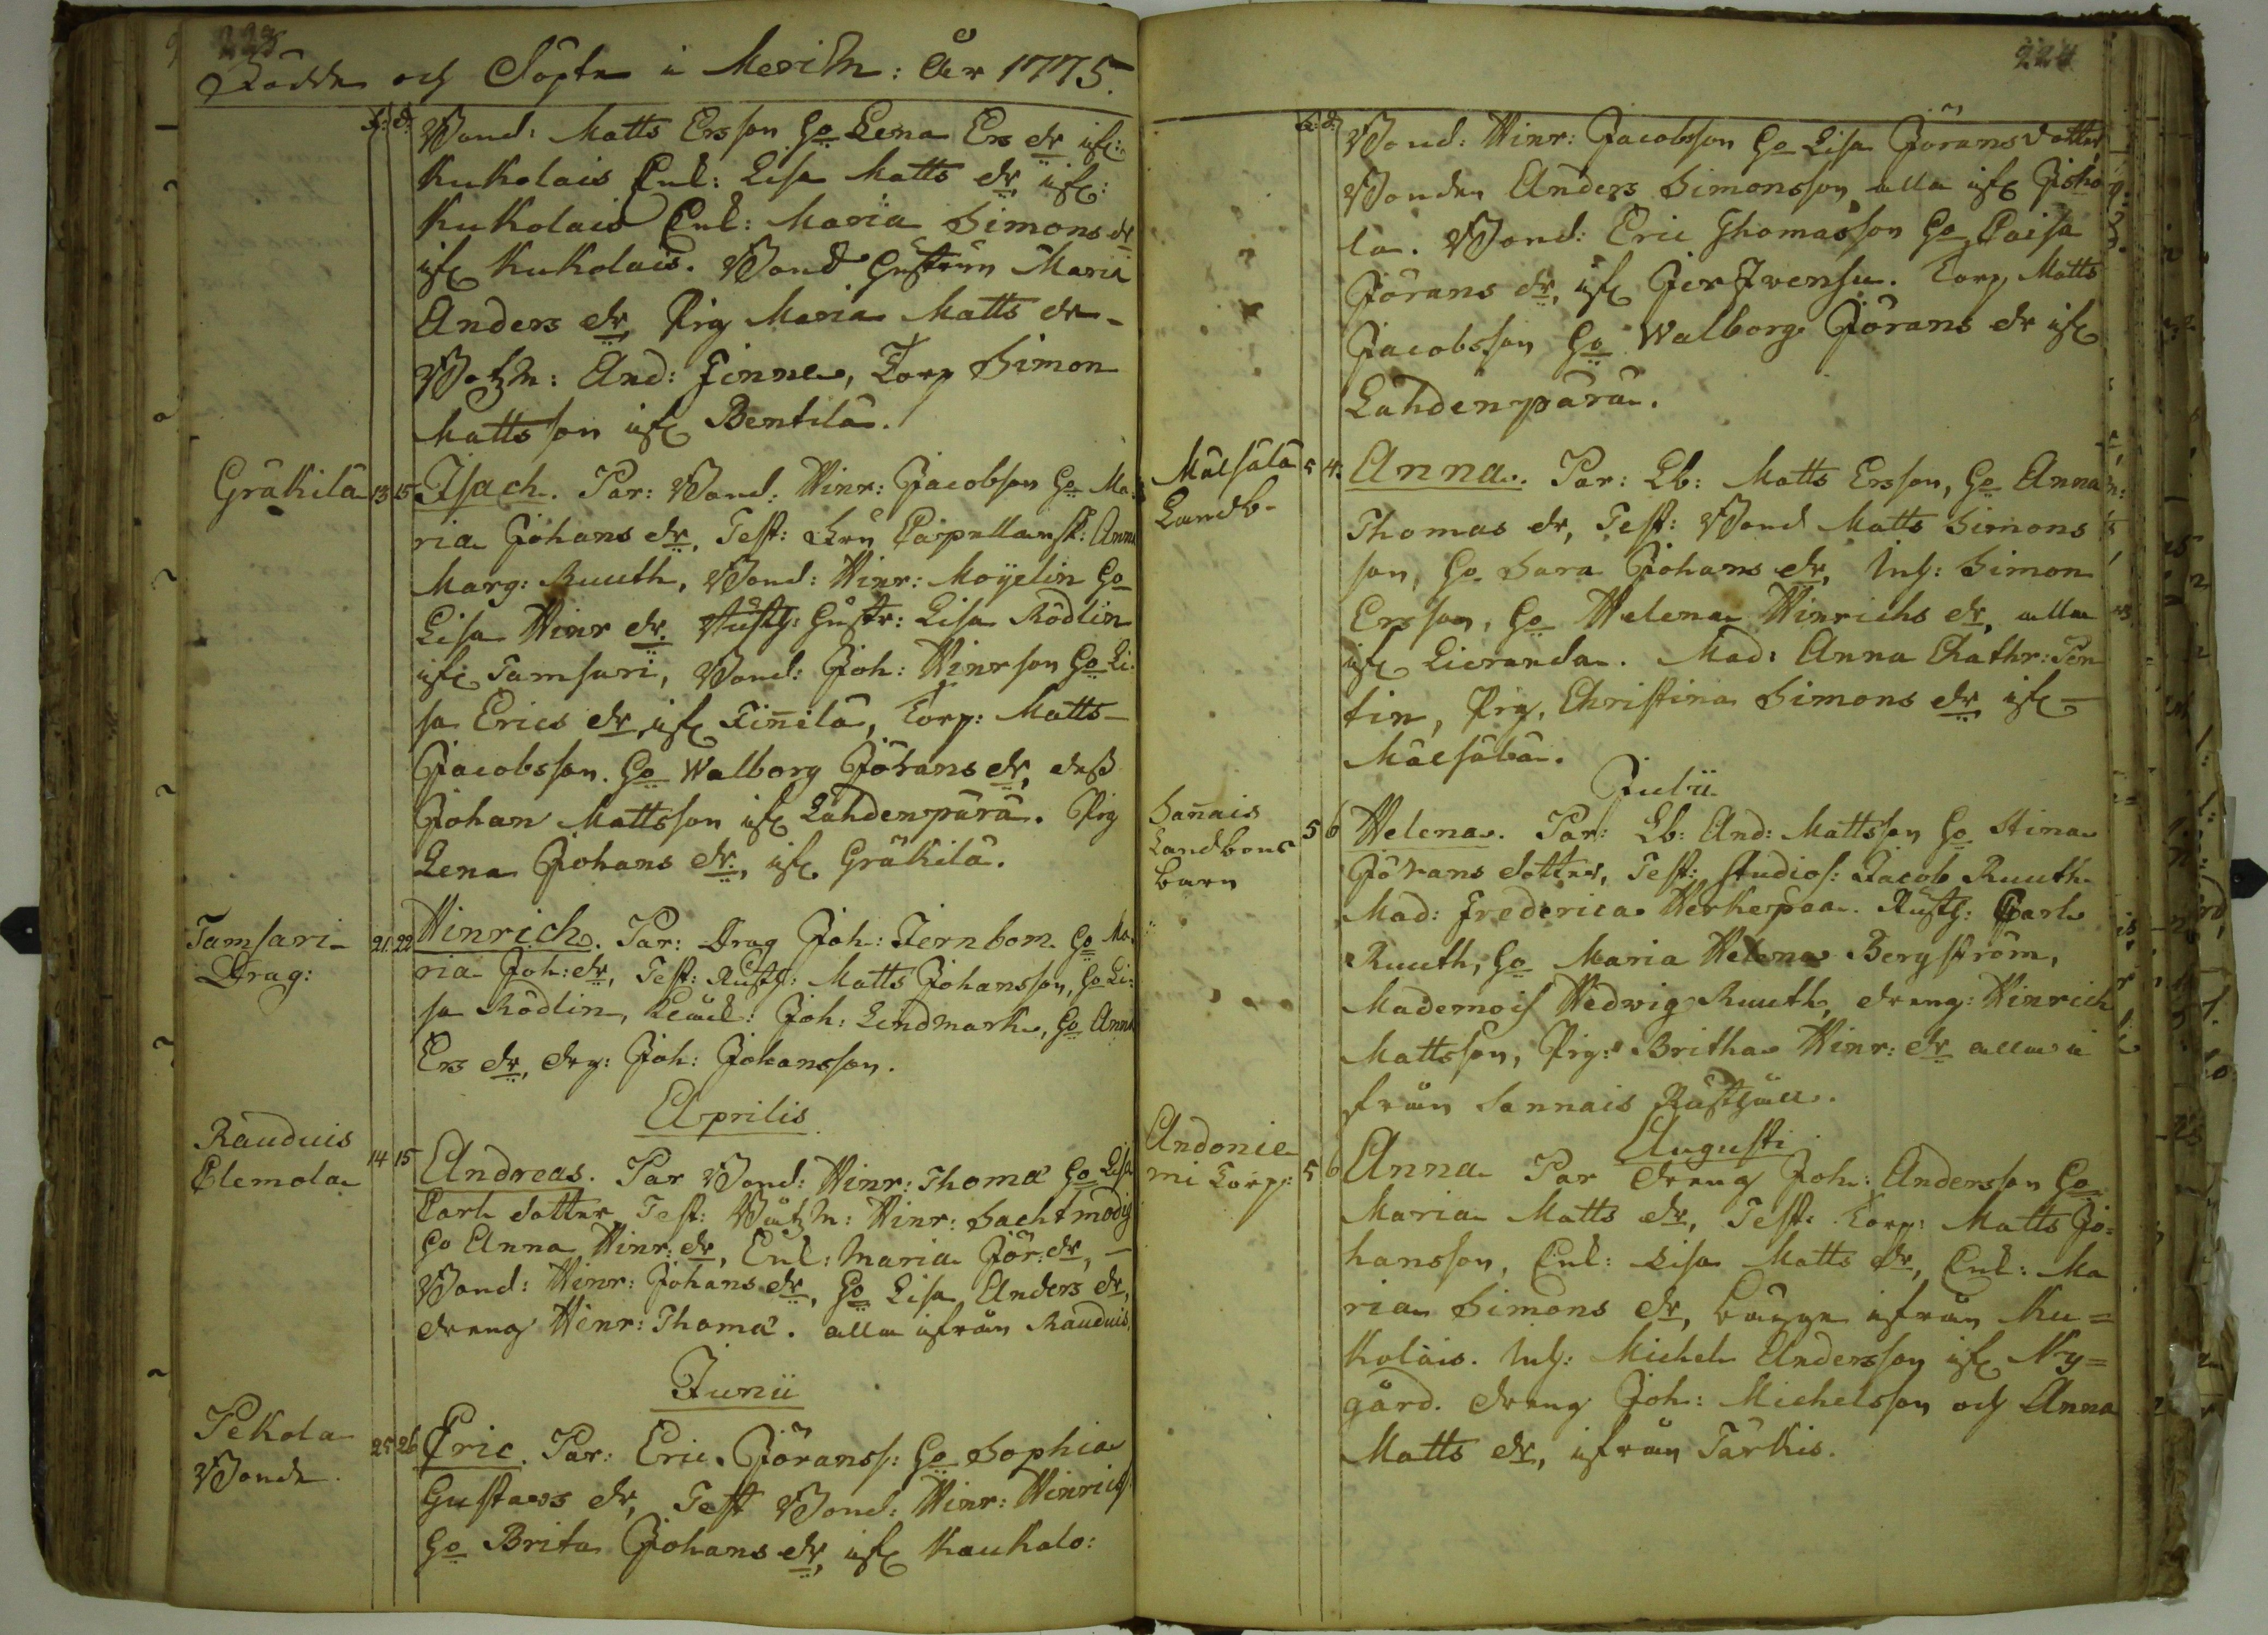 223
Födde och Döpte i MeriM: År 1775.
f: d:
Bond: Matts Ersson Ho Lena Ers dr ifr:
Kukolais Enk: Lisa Matts dr ifr:
Kukolais Enk: Maria Simons dr
ifr Kukolais. Bond Hustrun Maria
Anders dr Pig Maria Matts dr
BåtzM: And: Finne, Torp Simon
Mattsson ifr Bentilä.
Gräkilä 13 15 Isach. Par: Bond: Hinr: Jacobson Ho Ma:
ria Johans dr, Test: Fru Capellansk: Anna
Marg: Ruuth, Bond: Hinr: Moijelin Ho
Lisa Hinr dr. Rusth: Hustr: Lisa Rödlin
ifr Tamsari, Bond: Joh: Hinrson Ho Li:
sa Erics dr ifr Finnilä, Torp: Matts
Jacobsson. Ho Walborg Jörans dr, dess
Johan Mattsson ifr Lahdenpärä. Pig
Lena Johans dr, ifr Gräkilä.
Tamsari
Drag:
21 22 Hinrich. Par: Drag Joh: Jernbom Ho Ma
ria Joh: dr, Test: Rusth: Matts Johansson, Ho Li:
sa Rödlin, Joh: Lindmark, Ho Anna
Ers dr, drg: Joh: Johansson.
Aprilis
Rauduis
Elemola
14 15 Andreas. Par Bond: Hinr: Thomæ Ho Lisa
Carls dotter Test: BåtzM: Hinr: Sachtmodig
Ho Anna Hinr: dr, Enk: Maria Jör: dr,
Bond: Hinr: Johans dr, Ho Lisa Anders dr,
dreng Hinr: Thomæ. alla ifrån Rauduis.
Junii
Pekola
Bonde.
25 26 Eric. Par: Eric Jöranss: Ho Sophia
Gustavs dr, Test Bond: Hinr: Hinrichs
Ho Brita Johans dr, ifr Kaukolo:
224
f: d:
Bond: Hinr: Jacobsson Ho Lisa Jörans dotter
Bonden Anders Simonsson alla ifr Isko
la. Bond: Eric Thomasson Ho Caisa
Jörans dr, ifr Jerfvensu. Torp Matts
Jacobsson Ho Walborg Jörans dr ifr
Lahdenpärä.
Mälsälä
Landb.
5 4. Anna. Par: Lb: Matts Ersson, Ho Anna
Thomas dr, Test: Bond Matts Simons
son, Ho Sara Johans dr, Inh: Simon
Ersson, Ho Helena Hinrichs dr, alla
ifr Lieranda. Mad: Anna Chathr: Pen
tin, Pig, Christina Simons dr ifr
Mälsälä.
Julii
Sannais
Landbons
barn
5 6 Helena. Par: Lb: And: Mattsson Ho Stina
Jörans dotter, Test: Studios: Jacob Ruuth
Mad: Frederica Herkepaa. Rusth: Carl
Ruuth, Ho Maria Helena Bergström,
Mademois Hedvig Ruuth, dreng: Hinrich
Mattsson, Pig: Britha Hinr: dr alla i
från Sannais Rusthåll.
Augusti
Andonie
mi Torp:
5 6 Anna Par dreng Joh: Andersson Ho
Maria Matts dr, Test: Torp: Matts Jo=
hansson, Enk: Lisa Matts dr, Enk: Ma
ria Simons dr, bägge ifrån Ku=
kolais. Inh: Michel Andersson ifr Ny=
gård. dreng Joh: Michelsson och Anna
Matts dr, ifrån Tärkis.